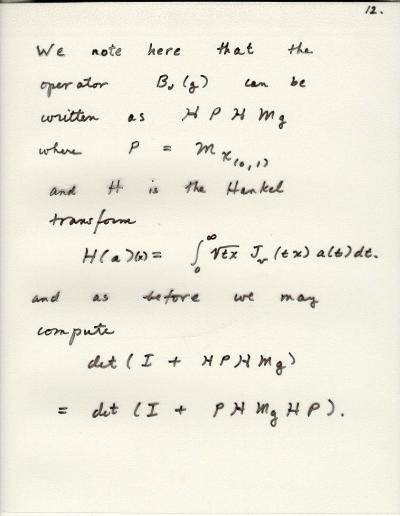 12.
We note here that the
operator B_ν(g) can be
written as H P H M_g
where P = M_χ_(0,1)
and H is the Hankel
transform
H(a)(x) = ∫_0^∞ √tx J_ν(tx) a(t)dt.
and as before we may
compute
det(I + H P H M_g)
= det(I + P H M_g H P).